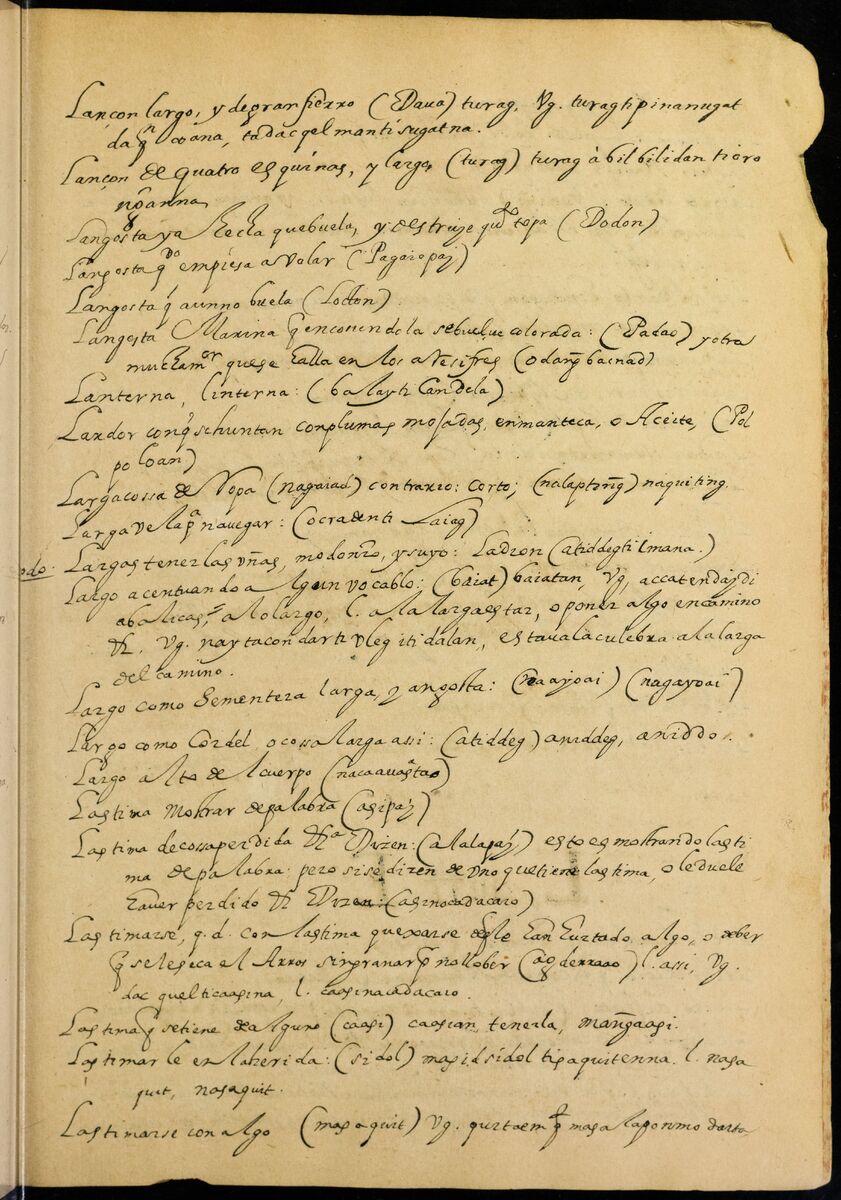 Lançon largo, y de gran fierro (Daua) turag, Vg. turag ti pinanugat
da qͥ tadac qel manti sugatna.
Lançon de quatro esquinas, y largo, (turag) turag à bilbilidan ti oro
noanna
Langosta ya hecha que buela, y destruje qᵈᵒ topa (Dodon)
Langosta qᵈᵒ empiesa a volar (Pagaiopaỹ)
Langosta q̃ aun no buela (Locton)
Langosta Marina q̃ en coniendola se buelue colorada: (Padao) y otra
mucha mᵒʳ que se halla en los aResifres (odang basnad)
Lanterna, linterna: (balayti Candela)
Lardor con q̃ se huntan con plumas mojadas, en manteca, o Aceite, (Pol
poloan)
Larga cossa de Ropa (nagaiad) contrario: corto; (nalaptinḡ) naquiting.
Larga vela pᵃ navegar: (ocradenti Laiag)
odo. Largas tener las vñas, modonrro, y suyo: Ladron (atiddegti imana.)
Largo acentuando algun vocablo: (baiat) baiatan, Vg, accatendaỹdi
abalicas, a lo largo, l. a la larga estar, o poner algo en camino
Vg. naytacondarti vleg iti dalan, estaua la culebra a la larga
del camino.
Largo como Sementera larga, y angosta: (naayoai) (nagayoai)
Largo como Cordel o cossa larga assi: (atiddeg) aniddeg, aniddo.
Largo alto de l cuerpo (nacaauastao)
Lastima Mostrar de palabra (asipaỹ)
Lastima de cossa perdida Dizen: (alalapaỹ) esto es mostrando lasti
ma de palabra: pero si se dizen de vno que tiene lastima, o le duele
hauer perdido Dizen: (asinocadacaio)
Lastimarse, q. d. con lastima quexarse le han hurtado algo, o deber
q̃ se le seca el Arros sin granar q̃ no llober (agderraao) l. assi, Vg.
dac quelticaasina, l. caasinacadacaio.
Lastima q̃ se tiene de alguno (caasi) caasian, tenerla, manḡaasi.
Lastimarle en la herida: (sidol) mapidsidol tipaquitenna. l. nasa
quit, nasaquit.
Lastimarse con algo (masaquit) Vg. quitaem masalaponmo